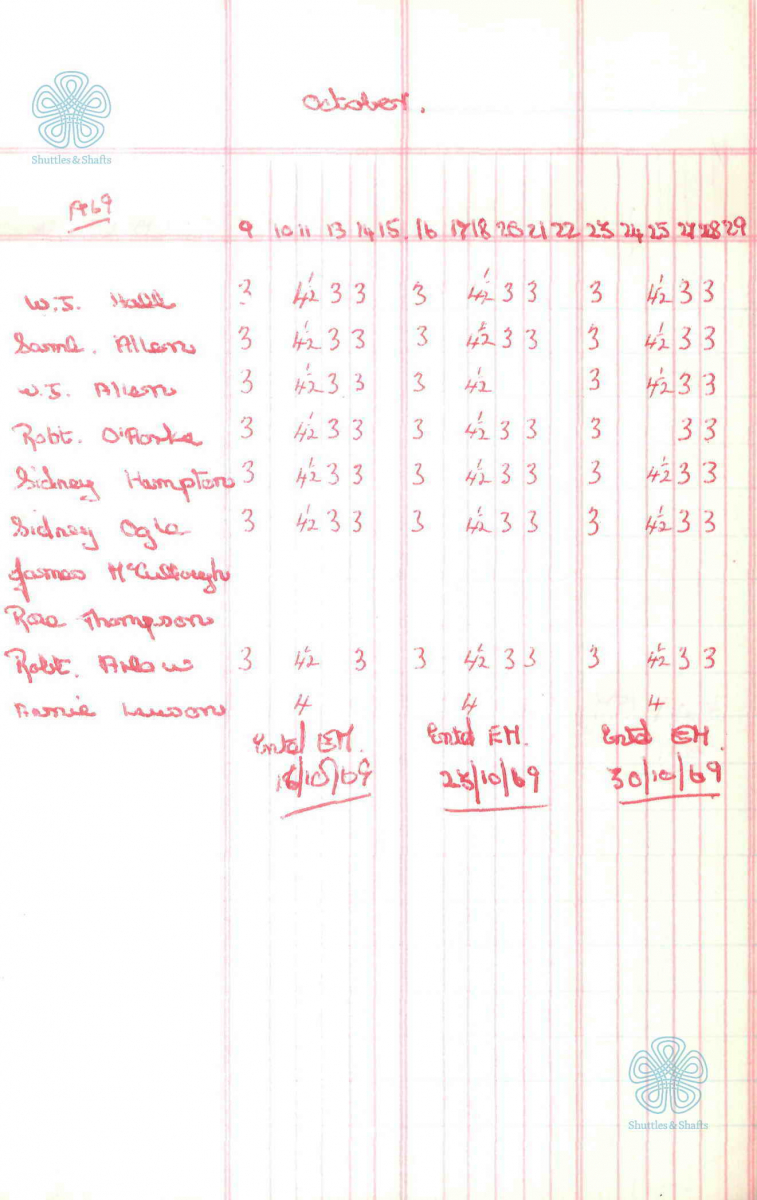 October.
Shuttles & Shafts
1969
9 10 11 13 14 15. 16 17 18 20 21 22 23 24 25 27 28 29
W.J. 3 4½ 3 3 3 4½ 3 3 3 4½ 3 3
Saml. Allen 3 4½ 3 3 3 4½ 3 3 3 4½ 3 3
W.J. Allen 3 4½ 3 3 3 4½ 3 4½ 3 3
Robt. O'Rorke 3 4½ 3 3 3 4½ 3 3 3 3 3
Sidney Hampton 3 4½ 3 3 3 4½ 3 3 3 4½ 3 3
Sidney Ogle 3 4½ 3 3 3 4½ 3 3 3 4½ 3 3
James McCullough
Rose Thompson
Robt. 3 4½ 3 3 4½ 3 3 3 4½ 3 3
Annie Lawson 4 4 4
Entd EM. Entd EM. Entd EM.
16/10/69 23/10/69 30/10/69
Shuttles & Shafts